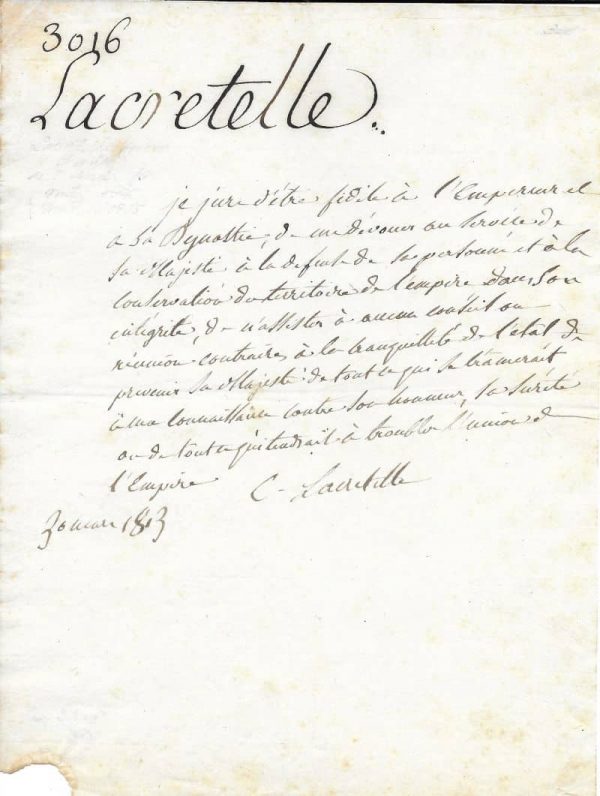 3016
Lacretelle
je jure d'être fidele à l'Empereur et
a sa Dynastie, de me dévouer au service de
sa Majesté à la defense de sa personne et à la
conservation du territoire de l'empire dans son
intégrité, de n'assister à aucun conseil ou
réunion contraires à la tranquillité de l'état de
prevenir sa Majesté de tout ce qui se tramerait
à ma connaissance contre son honneur, sa sûreté
ou de tout ce qui tendrait à troubler l'union de
l'Empire C. Lacretelle
30 mars 1813